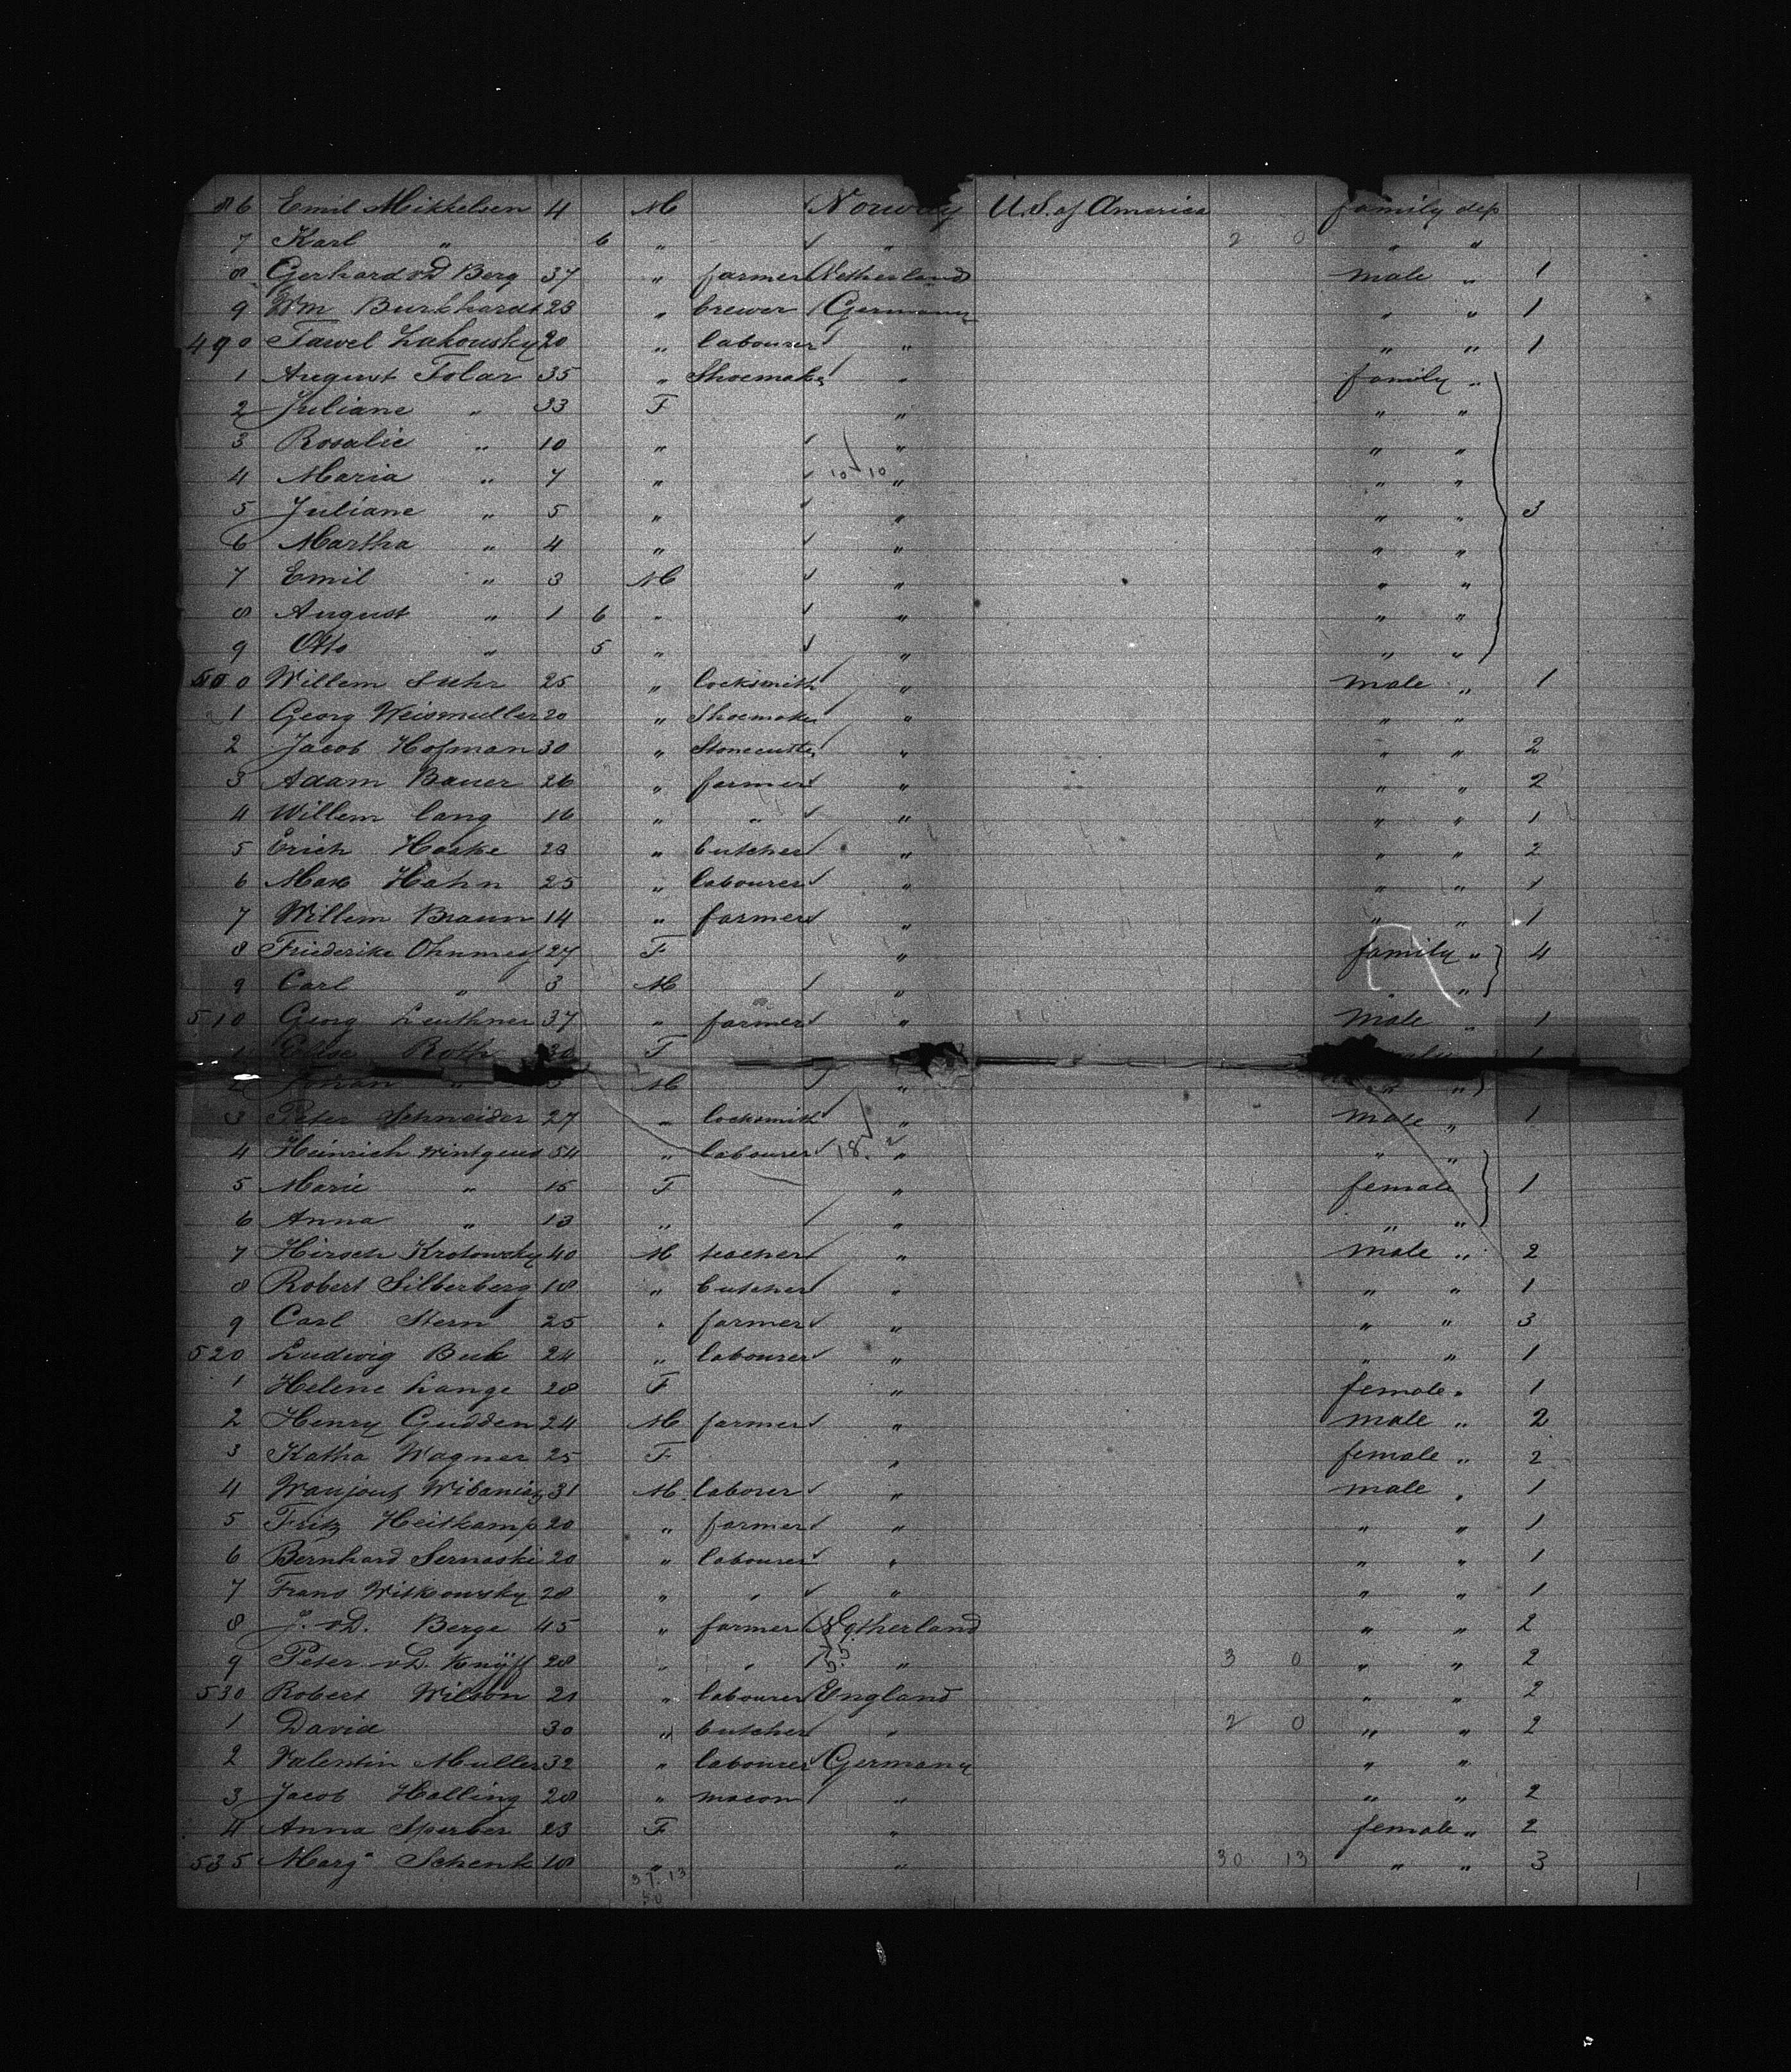 86 Emil Mikkelsen 4 M Norway U.S. of America family dep
7 Karl " 6 " " 2 0 " "
8 Gerhard v.d. Berg 37 " farmer Netherland male " 1
9 Wm Burkhardt 23 " brewer Germany " " 1
490 Pawel Lakousky 20 " labourer " " " 1
1 August Folar 35 " Shoemaker " family "
2 Juliane " 33 F " " "
3 Rosalie " 10 " " " "
4 Maria " 7 " 10/10 " " "
5 Juliane " 5 " " " " 3
6 Martha " 4 " " " "
7 Emil " 3 M " " "
8 August " 1 6 " " " "
9 Otto " 5 " " " "
500 Willem Suhr 25 " locksmith " male " 1
1 Georg Weismuller 20 " Shoemaker " " "
2 Jacob Hofman 30 " Stonecutter " " " 2
3 Adam Bauer 26 " farmer " " " 2
4 Willem Lang 16 " " " " " 1
5 Erich Haake 23 " butcher " " " 2
6 Max Hahn 25 " labourer " " " 1
7 Willem Braun 14 " farmer " " " 1
8 Friederike 27 F " family " 4
9 Carl " 3 M " " "
510 Georg Leuthner 37 " farmer " male " 1
1 Roth 30 F 1
Johan " 3 M " " "
3 Peter Schneider 27 " locksmith " male " 1
4 Heinrich Wintgens 54 " labourer 18 " " "
5 Marie " 15 F " female 1
6 Anna " 13 " " " "
7 Hirsch Krotowsky 40 M teacher " male " 2
8 Robert Silberberg 18 " butcher " " " 1
9 Carl Stern 25 " farmer " " " 3
520 Ludwig Buk 24 " labourer " " " 1
1 Helene Lange 28 F " female " 1
2 Henry Gudden 24 M farmer " male " 2
3 Katha Wagner 25 F " female " 2
4 31 M laborer " male " 1
5 Fritz Heitkamp 20 " farmer " " " 1
6 Bernhard Sernaski 20 " labourer " " " 1
7 Frans Witkowsky 28 " " " " " 1
8 J. v.D. Berge 45 " farmer Netherland " " 2
9 Peter v.d. Knijff 28 " " " 3 0 " " 2
530 Robert Wilson 21 " labourer England " " 2
1 David 30 " butcher " 2 0 " " 2
2 Valentin Muller 32 " labourer Germany " "
3 Jacob Halling 28 " mason " " " 2
4 Anna Sperber 23 F " female " 2
535 Marg<sup>a</sup> Schenk 18 " " 30 13 " " 3
37.13